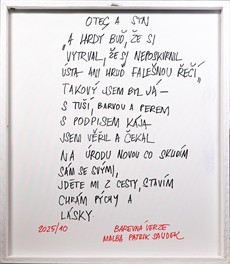 OTEC A SYN
„A HRDÝ BUĎ, ŽE SI
VYTRVAL, ŽE SI NEPOSKVRNIL
ÚSTA ANI HRUĎ FALEŠNOU ŘEČÍ“
TAKOVÝ JSEM BYL JÁ —
S TUŠÍ, BARVOU A PEREM
S PODPISEM KÁJA
JSEM VĚŘIL A ČEKAL
NA ÚRODU NOVOU CO SKLIDÍM
SÁM SE SVÝMI,
JDĚTE MI Z CESTY, STAVÍM
CHRÁM PÝCHY A
LÁSKY
2025/10
BAREVNÁ VERZE
MALBA PATRIK SAUDEK